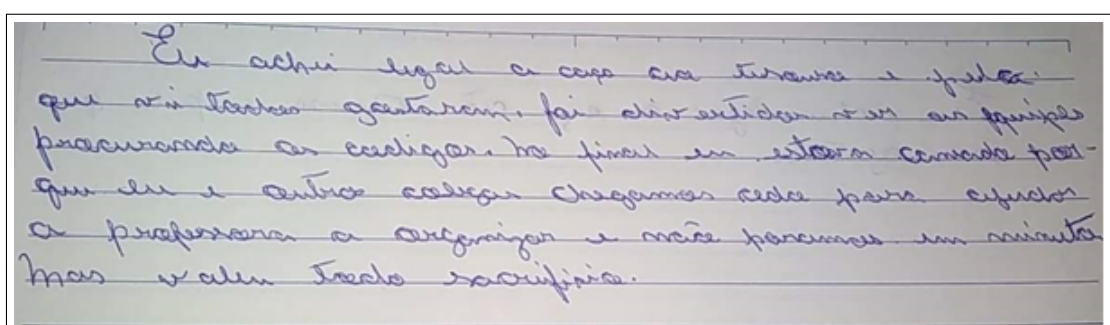 Eu achei legal a caça ao tesouro e pelo
que vi todos gostaram, foi divertidos ver as equipes
procurando os codigos. No final eu estava cansada por-
que eu e outros colegas chegamos cedo para ajudar
a professora a organizar e não paramos um minuto
Mas valeu todo sacrifício.